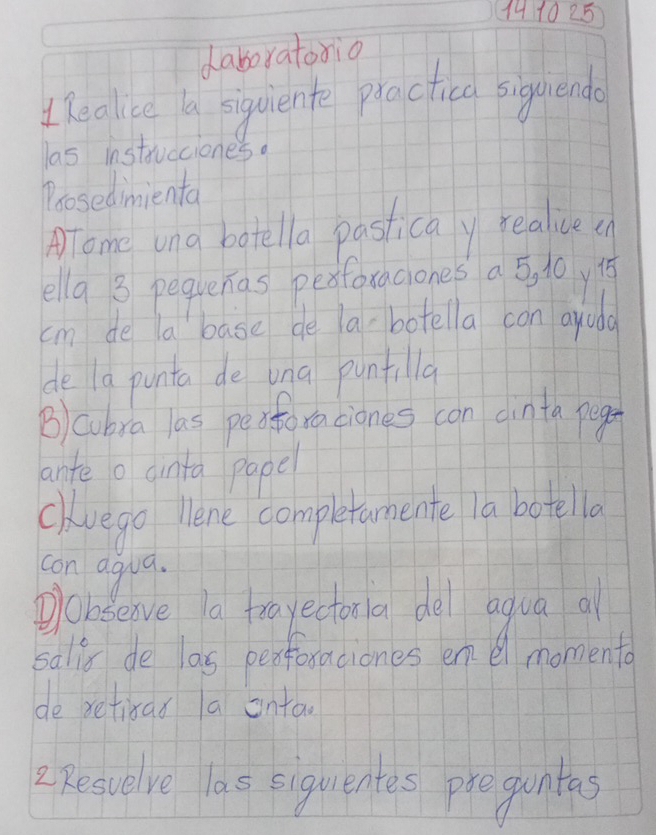 14 10 25
Laboratorio
1 Realice la siguiente practica siguiendo
las instrucciones.
Prosedimienta
A) Tome una botella pastica y realice en
ella 3 pequeñas perforaciones a 5, 10 y 15
cm de la base de la botella con ayuda
de la punta de una puntilla
B) Cubra las perforaciones con cinta peg
ante o cinta papel
C) Luego llene completamente la botella
con agua.
D) Observe la trayectoria del agua al
salir de las perforaciones en el momento
de retirar la cinta.
2 Resuelve las siguientes preguntas